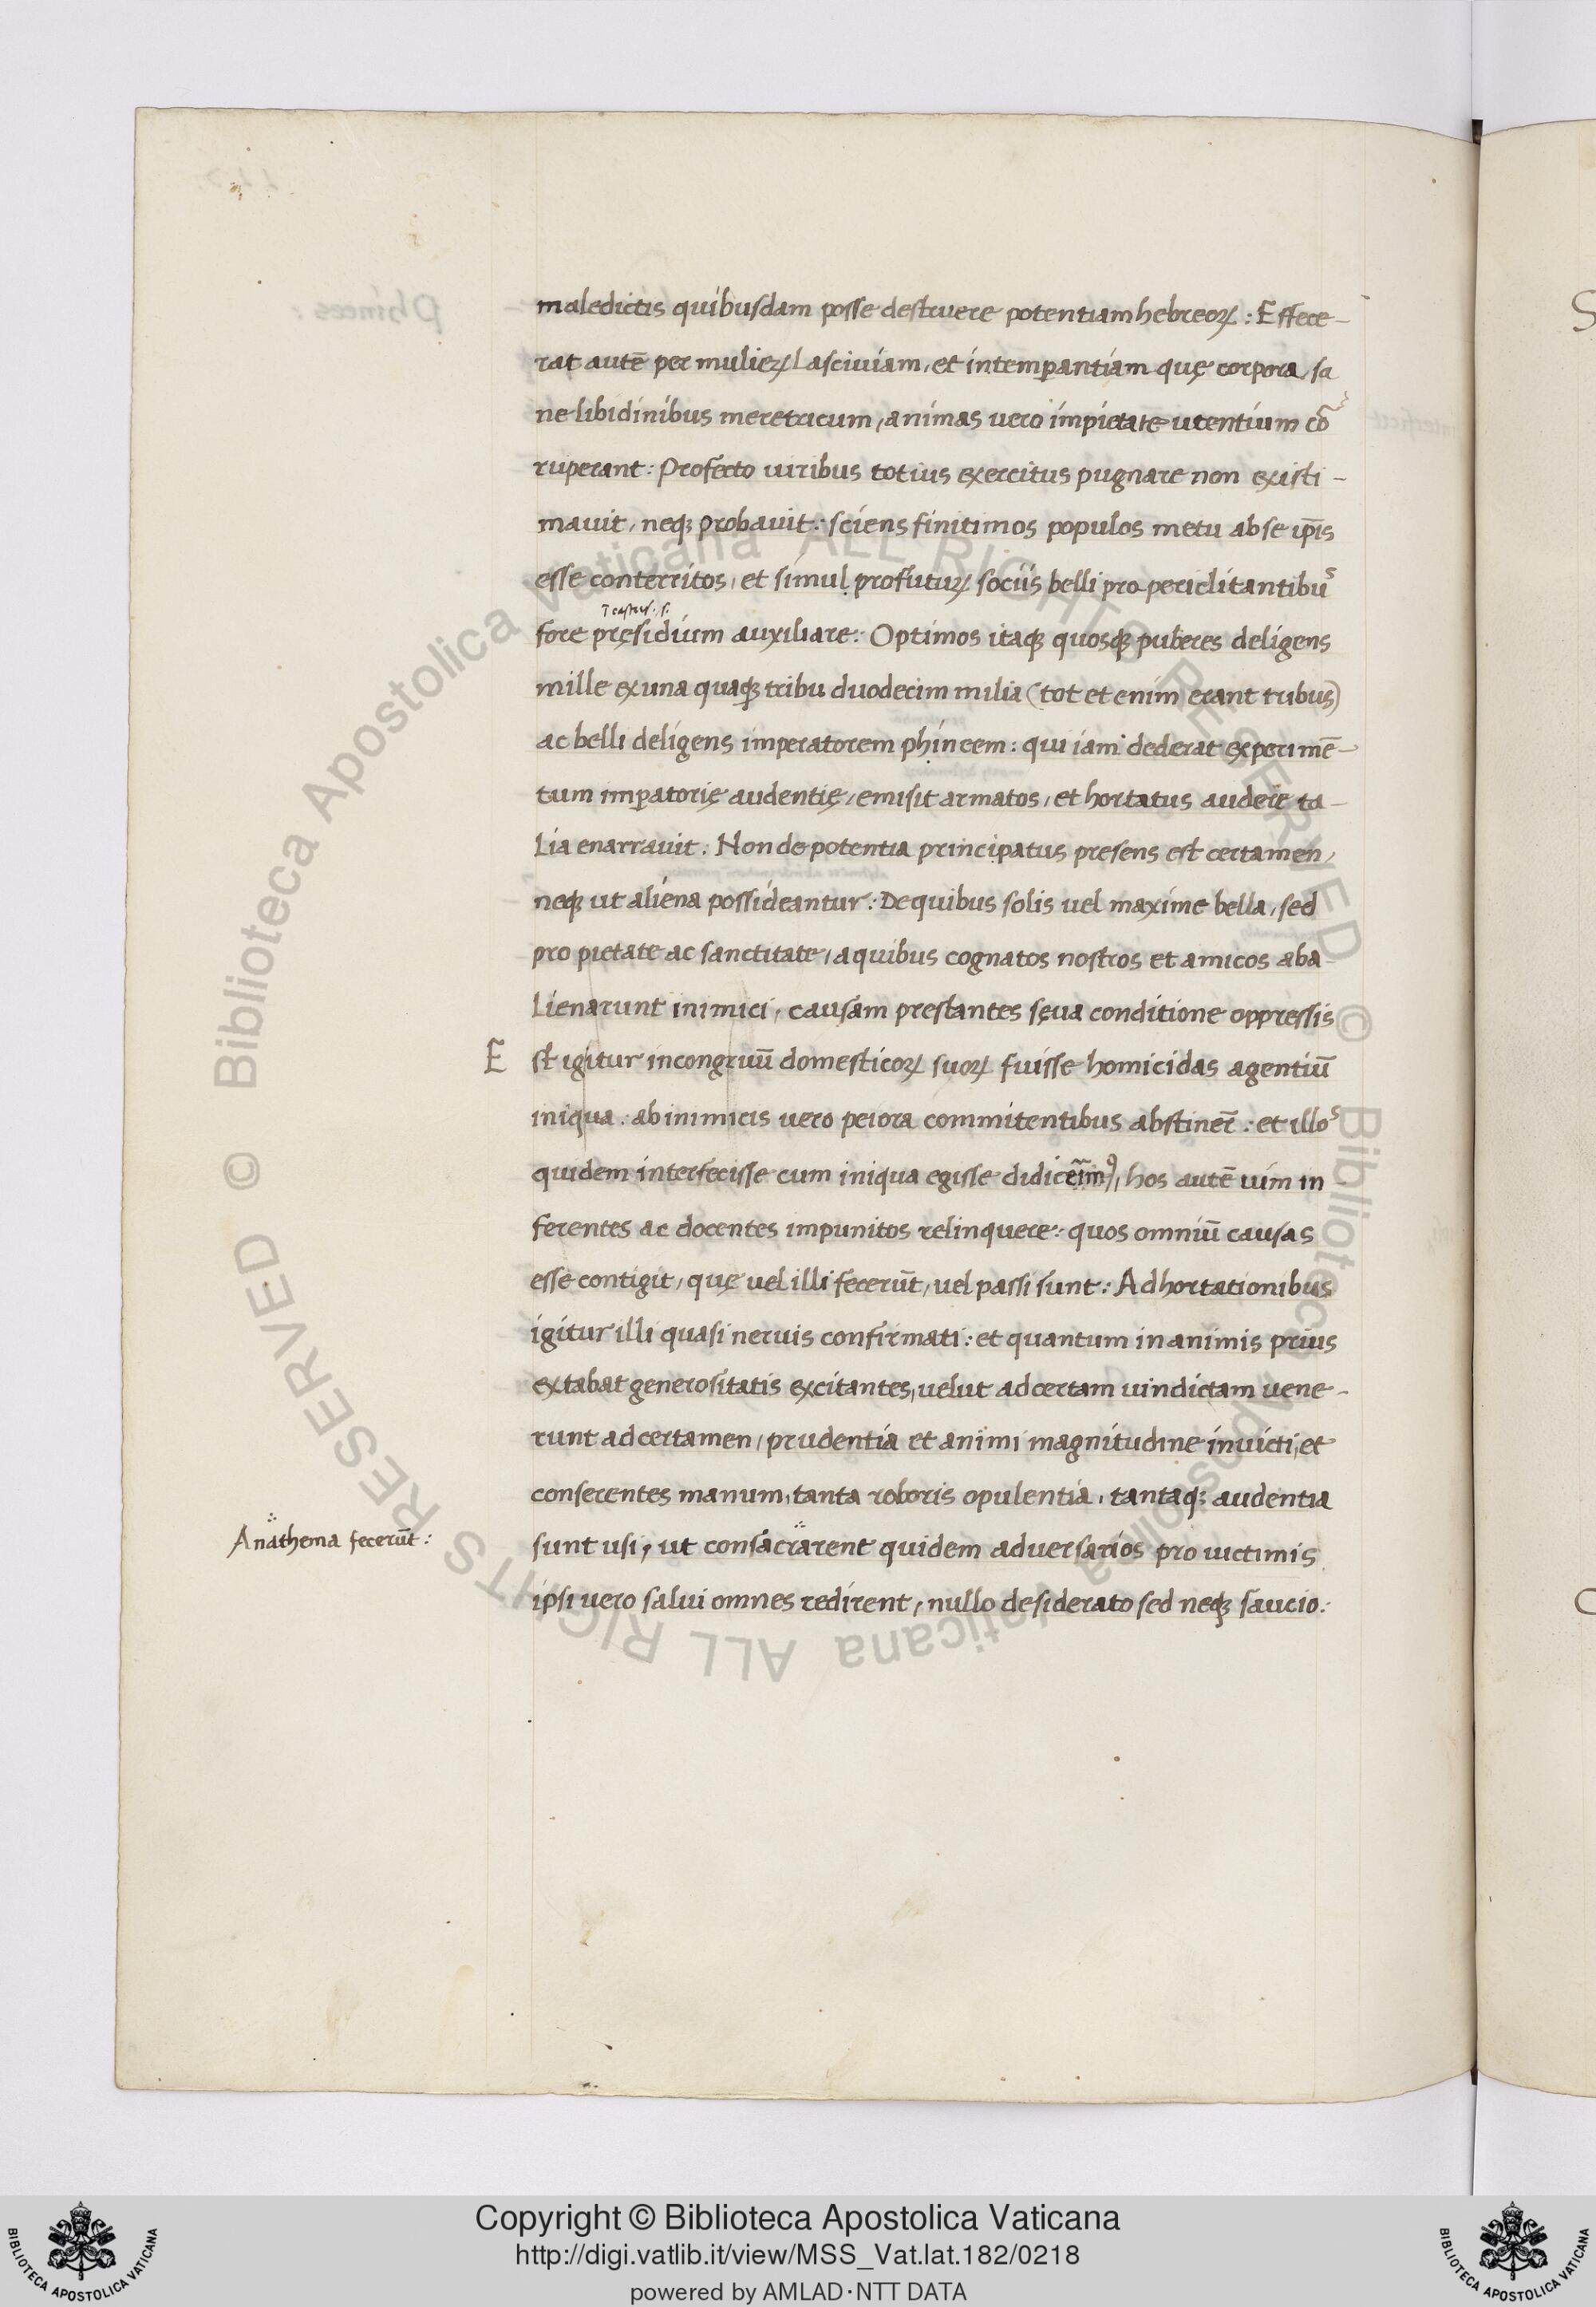 maledictis quibusdam posse destruere potentiam hebreoꝝ : Effece-
rat autē per mulieꝝ Lasciuiam, et intemꝑantiam quę corpora, sa
ne libidinibus meretricum, animas vero impietate utentium cō
ruperant : Profecto uiribus totius exercitus pugnare non existi-
mauit, neqꝫ probauit : sciens finitimos populos metu ab se ip̄is
esse conterritos, et simul profutuꝝ sociis belli pro periclitantibus
fore pręsidium auxiliare : Optimos itaqꝫ quosqꝫ puberes deligens
mille ex una quaqꝫ tribu duodecim milia (tot et enim erant tribus)
ac belli deligens imperatorem phineem : qui iam dederat experimē-
tum imꝑatorię audentię, emisit armatos, et hortatus audere ta-
Lia enarrauit . Non de potentia principatus presens est certamen,
neqꝫ ut aliena possideantur : De quibus solis uel maxime bella, sed
pro pietate ac sanctitate, a quibus cognatos nostros et amicos aba-
Lienarunt inimici, causam prestantes sęua conditione oppressis
E st igitur incongruū domesticoꝝ suoꝝ fuisse homicidas agentiū
iniqua : ab inimicis uero peiora commitentibus abstiner̄ : et illos
quidem interfecisse cum iniqua egisse didicerimꝰ, hos autē uim in
ferentes ac docentes impunitos relinquere : quos omniū causas
esse contigit, quę uel illi fecerūt, uel passi sunt : Adhortationibus
igitur illi quasi neruis confirmati : et quantum in animis prius
extabat generositatis excitantes, uelut ad certam uindictam uene-
runt ad certamen, prudentia et animi magnitudine inuicti, et
conserentes manum, tanta roboris opulentia, tantaqꝫ audentia
Anathema fecerūt :
sunt usi, ut consacrarent quidem aduersarios pro uictimis
ipsi uero salui omnes redirent, nullo desiderato sed neqꝫ saucio :
Copyright © Biblioteca Apostolica Vaticana
http://digi.vatlib.it/view/MSS_Vat.lat.182/0218
powered by AMLAD·NTT DATA
BIBLIOTECA APOSTOLICA VATICANA
BIBLIOTECA APOSTOLICA VATICANA
© Biblioteca Apostolica Vaticana ALL RIGHTS RESERVED © Biblioteca Apostolica Vaticana ALL RIGHTS RESERVED